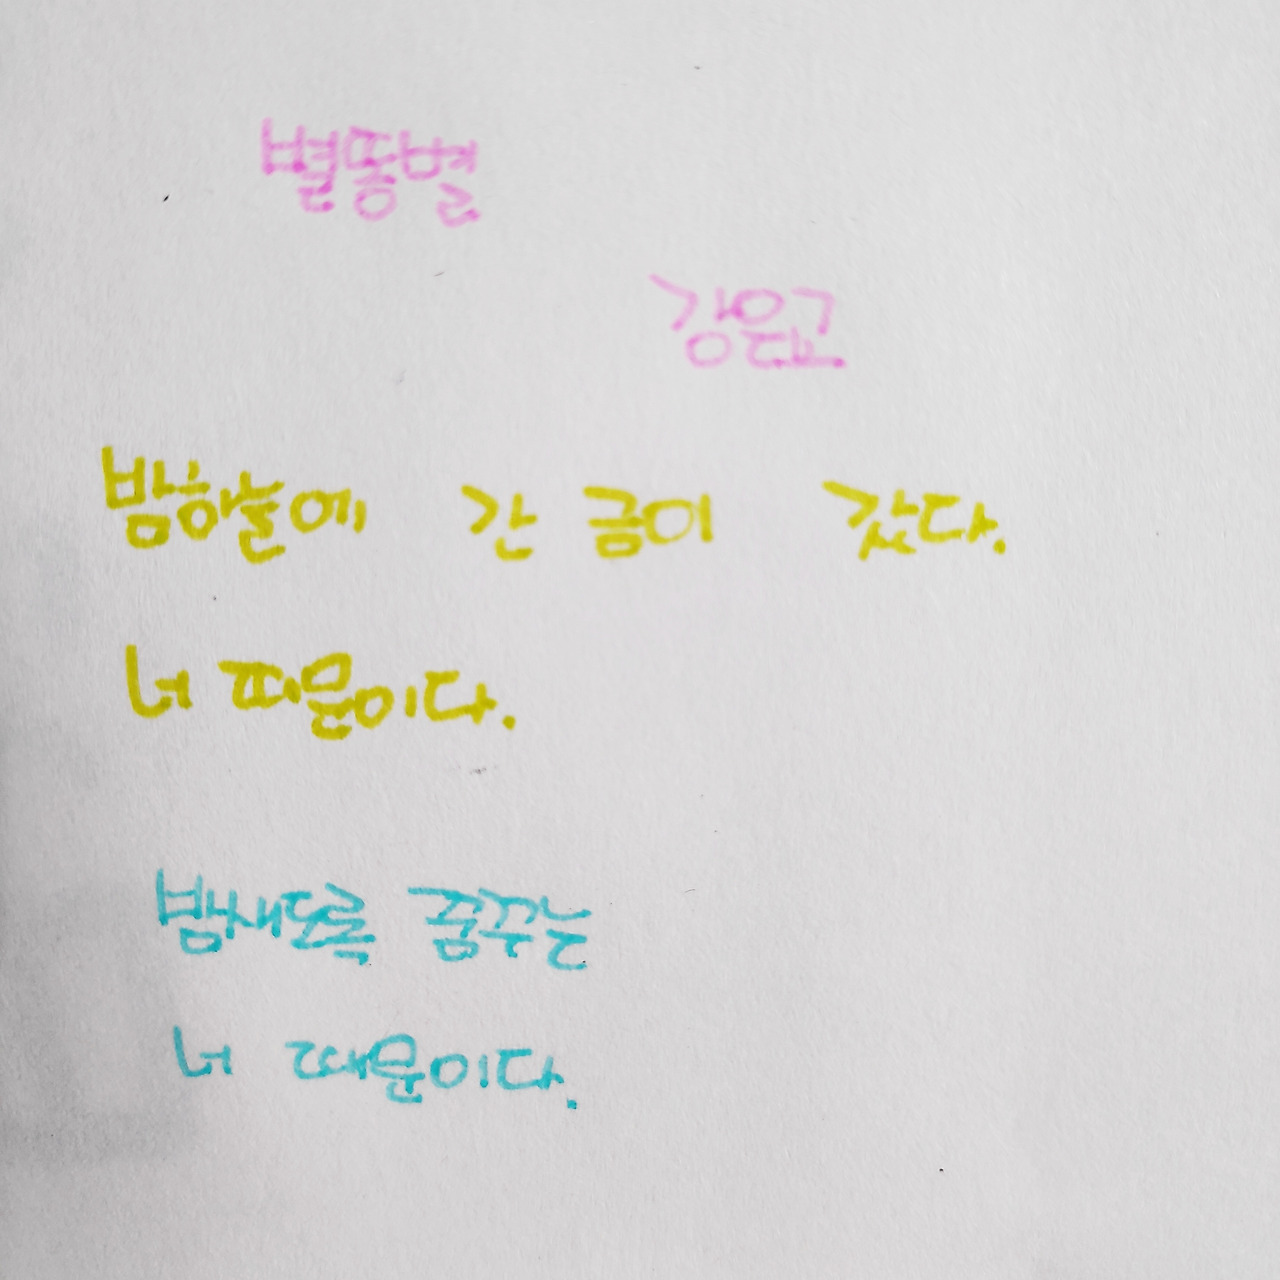 별똥별
강은교
밤하늘에 긴 금이 갔다.
너 때문이다.
밤새도록 꿈꾸는
너 때문이다.